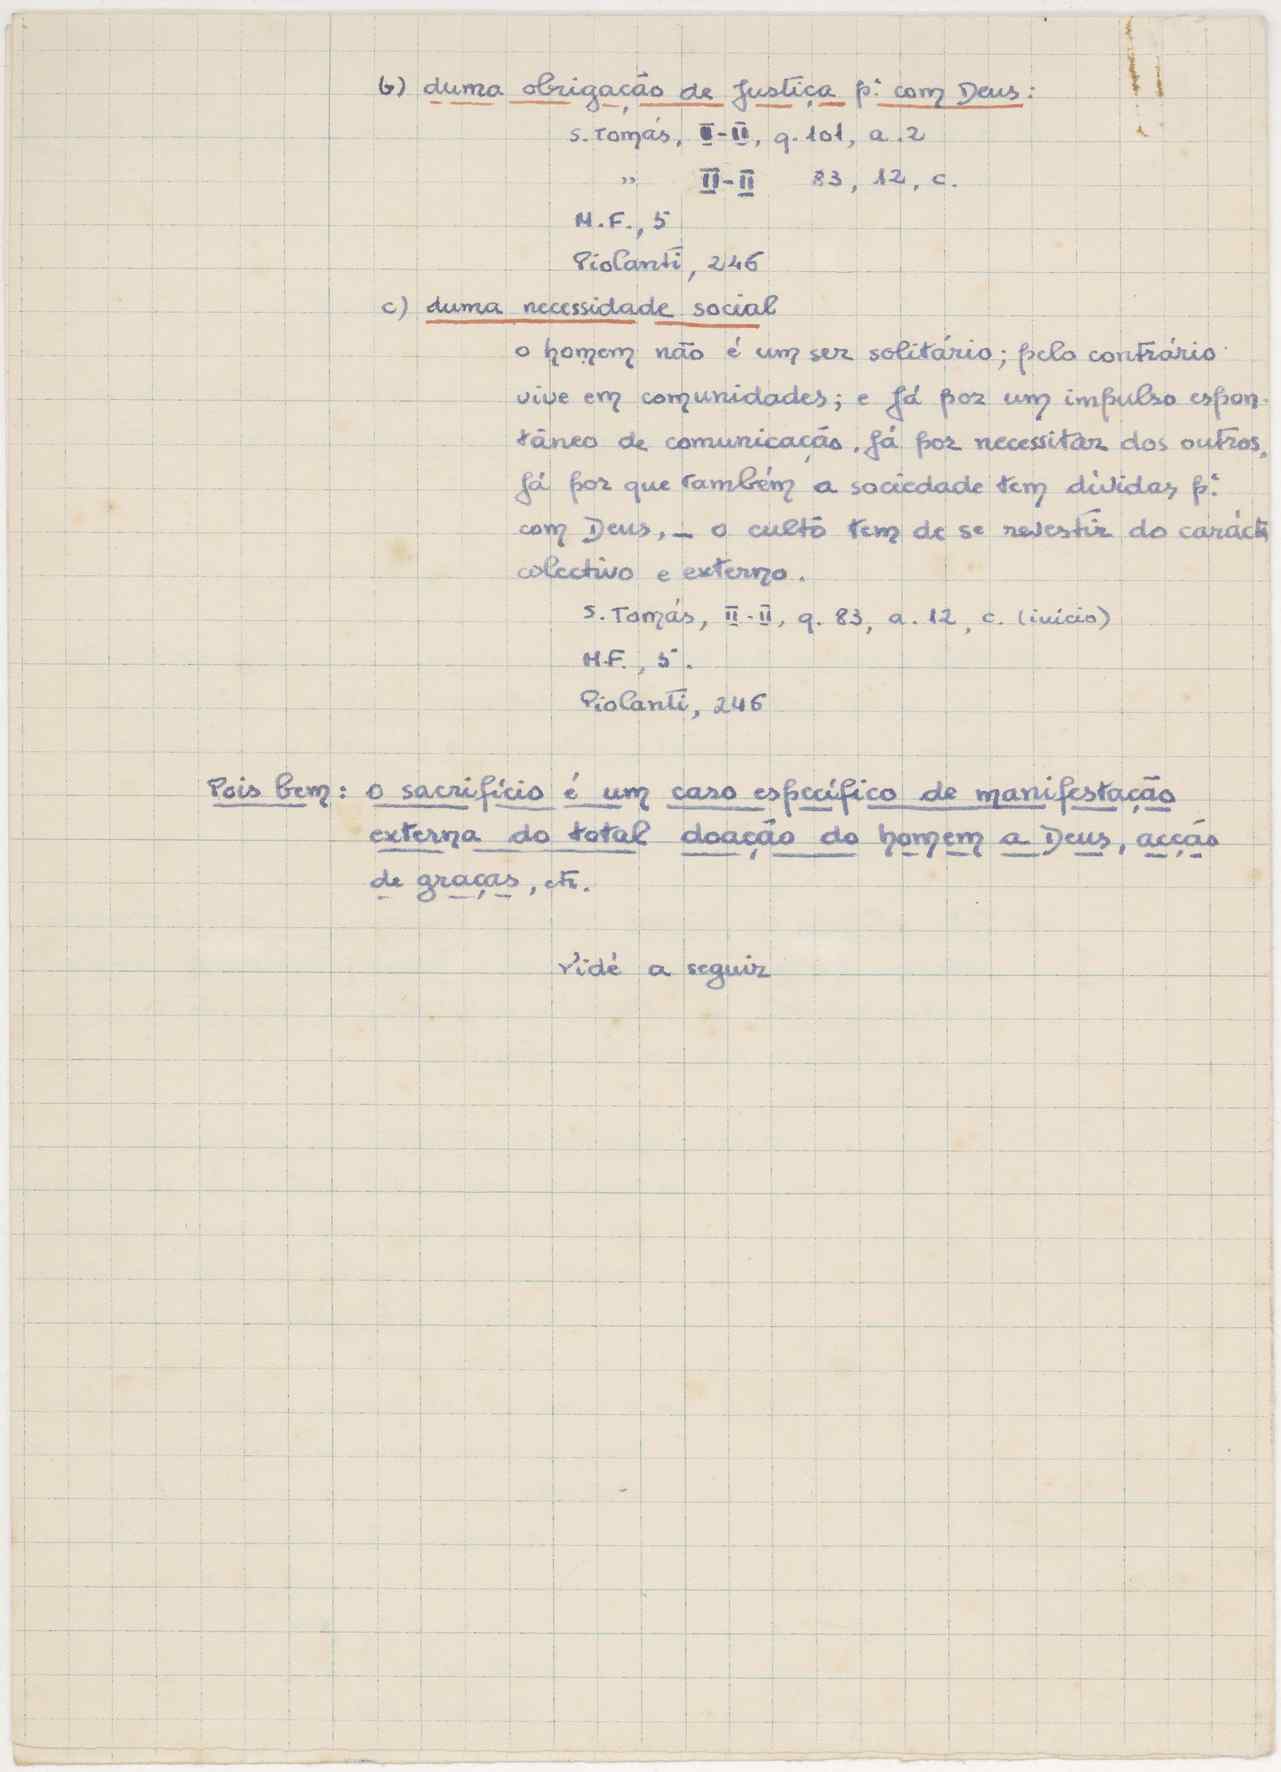 b) duma obrigação de justiça p.ª com Deus:
S. Tomás, II-II, q. 101, a. 2
" II-II 83, 12, c.
M.F., 5
Piolanti, 246
c) duma necessidade social
o homem não é um ser solitário; pelo contrário
vive em comunidades; e já por um impulso espon-
tâneo de comunicação, já por necessitar dos outros,
já por que também a sociedade tem dívidas p.ª
com Deus, — o culto tem de se revestir do
colectivo e externo.
S. Tomás, II-II, q. 83, a. 12, c. (início)
M.F., 5.
Piolanti, 246
Pois bem: o sacrifício é um caso específico de manifestação
externa do total doação do homem a Deus, acção
de graças, etc.
Vidé a seguir